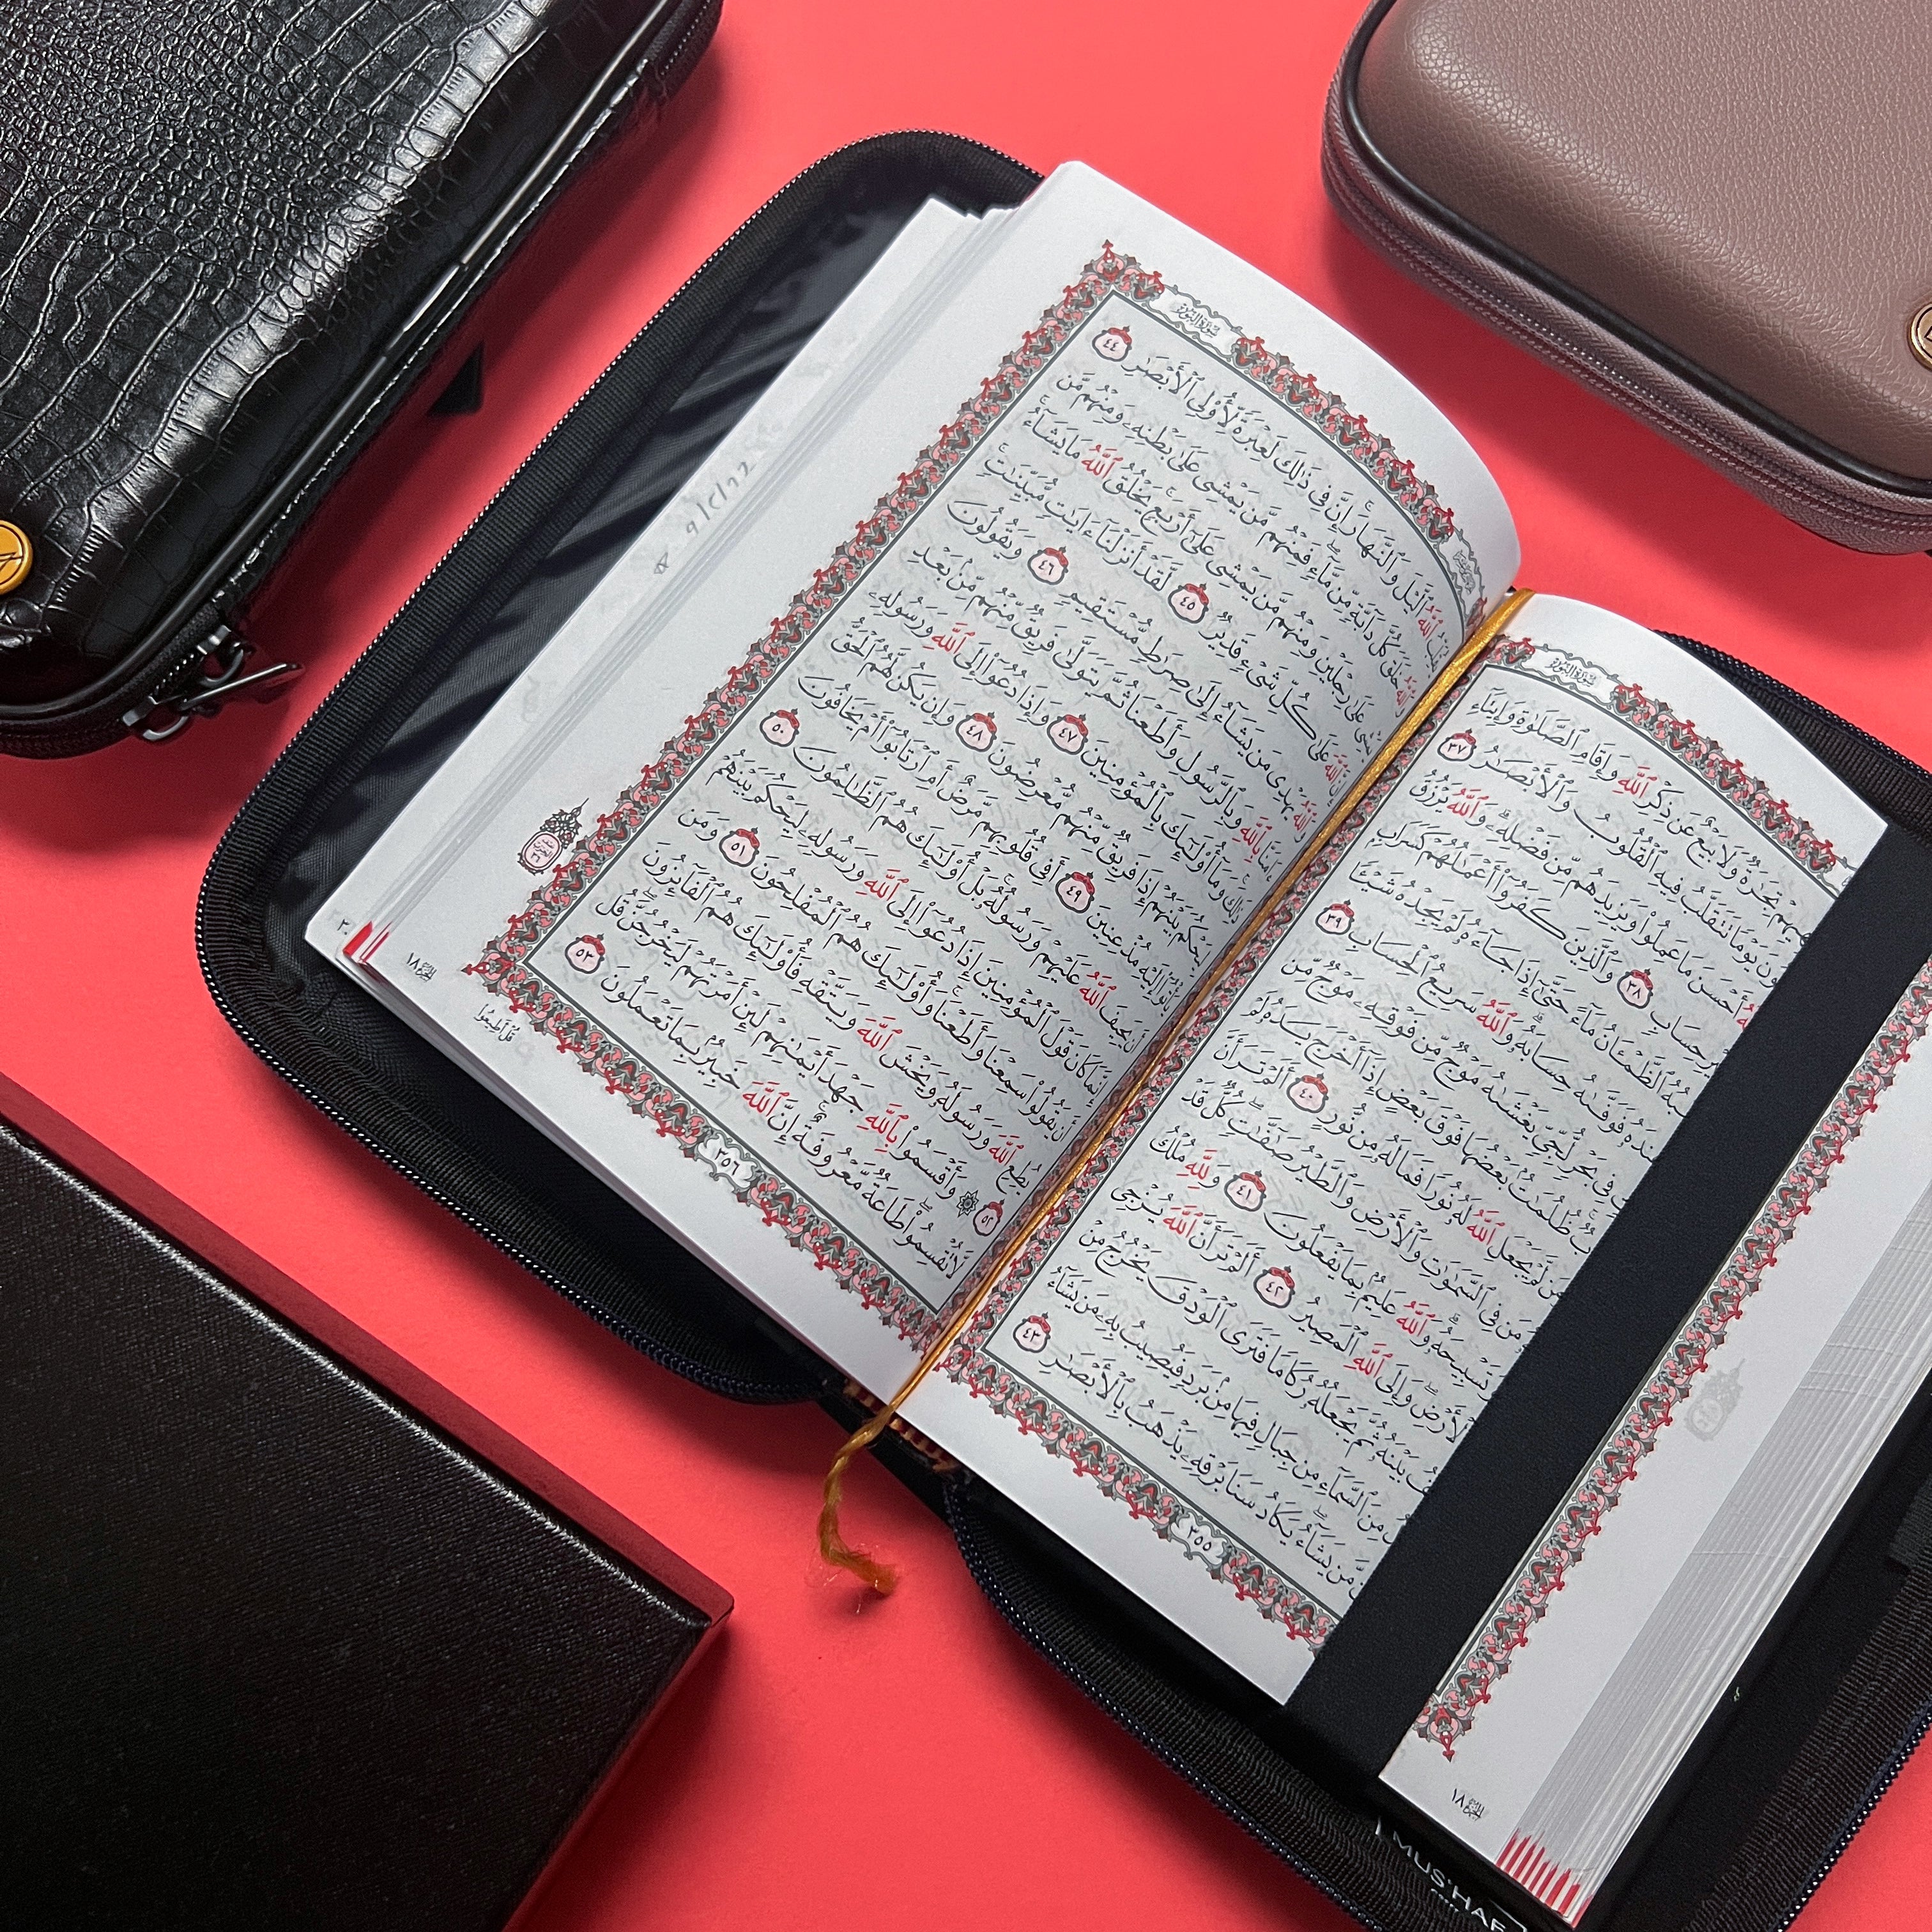 سورة النور
تِجَٰرَةٌ وَلَا بَيْعٌ عَن ذِكْرِ ٱللَّهِ وَإِقَامِ ٱلصَّلَوٰةِ وَإِيتَآءِ
يَوْمًا تَتَقَلَّبُ فِيهِ ٱلْقُلُوبُ وَٱلْأَبْصَٰرُ ٣٧
أَحْسَنَ مَا عَمِلُوا۟ وَيَزِيدَهُم مِّن فَضْلِهِۦ ۗ وَٱللَّهُ يَرْزُقُ
حِسَابٍ ٣٨ وَٱلَّذِينَ كَفَرُوٓا۟ أَعْمَٰلُهُمْ كَسَرَابٍ
ٱلظَّمْـَٔانُ مَآءً حَتَّىٰٓ إِذَا جَآءَهُۥ لَمْ يَجِدْهُ شَيْـًٔا
فَوَفَّىٰهُ حِسَابَهُۥ ۗ وَٱللَّهُ سَرِيعُ ٱلْحِسَابِ ٣٩
فِى بَحْرٍ لُّجِّىٍّ يَغْشَىٰهُ مَوْجٌ مِّن فَوْقِهِۦ مَوْجٌ مِّن
ظُلُمَٰتٌۢ بَعْضُهَا فَوْقَ بَعْضٍ إِذَآ أَخْرَجَ يَدَهُۥ لَمْ
لَّمْ يَجْعَلِ ٱللَّهُ لَهُۥ نُورًا فَمَا لَهُۥ مِن نُّورٍ ٤٠ أَلَمْ تَرَ أَنَّ
مَن فِى ٱلسَّمَٰوَٰتِ وَٱلْأَرْضِ وَٱلطَّيْرُ صَٰٓفَّٰتٍ ۖ كُلٌّ قَدْ
وَتَسْبِيحَهُۥ ۗ وَٱللَّهُ عَلِيمٌۢ بِمَا يَفْعَلُونَ ٤١ وَلِلَّهِ مُلْكُ
وَٱلْأَرْضِ ۖ وَإِلَى ٱللَّهِ ٱلْمَصِيرُ ٤٢ أَلَمْ تَرَ أَنَّ ٱللَّهَ يُزْجِى
بَيْنَهُۥ ثُمَّ يَجْعَلُهُۥ رُكَامًا فَتَرَى ٱلْوَدْقَ يَخْرُجُ مِنْ
مِنَ ٱلسَّمَآءِ مِن جِبَالٍ فِيهَا مِنۢ بَرَدٍ فَيُصِيبُ بِهِۦ مَن يَشَآءُ
مَّن يَشَآءُ ۖ يَكَادُ سَنَا بَرْقِهِۦ يَذْهَبُ بِٱلْأَبْصَٰرِ ٤٣
٣٥٥
الجزء ١٨
سورة النور
ٱللَّهُ ٱلَّيْلَ وَٱلنَّهَارَ ۚ إِنَّ فِى ذَٰلِكَ لَعِبْرَةً لِّأُو۟لِى ٱلْأَبْصَٰرِ ٤٤
خَلَقَ كُلَّ دَآبَّةٍ مِّن مَّآءٍ ۖ فَمِنْهُم مَّن يَمْشِى عَلَىٰ بَطْنِهِۦ وَمِنْهُم مَّن
يَمْشِى عَلَىٰ رِجْلَيْنِ وَمِنْهُم مَّن يَمْشِى عَلَىٰٓ أَرْبَعٍ ۚ يَخْلُقُ ٱللَّهُ مَا يَشَآءُ ۚ
عَلَىٰ كُلِّ شَىْءٍ قَدِيرٌ ٤٥ لَّقَدْ أَنزَلْنَآ ءَايَٰتٍ مُّبَيِّنَٰتٍ ۚ
يَهْدِى مَن يَشَآءُ إِلَىٰ صِرَٰطٍ مُّسْتَقِيمٍ ٤٦ وَيَقُولُونَ
ءَامَنَّا بِٱللَّهِ وَبِٱلرَّسُولِ وَأَطَعْنَا ثُمَّ يَتَوَلَّىٰ فَرِيقٌ مِّنْهُم مِّنۢ بَعْدِ
ذَٰلِكَ ۚ وَمَآ أُو۟لَٰٓئِكَ بِٱلْمُؤْمِنِينَ ٤٧ وَإِذَا دُعُوٓا۟ إِلَى ٱللَّهِ وَرَسُولِهِۦ
لِيَحْكُمَ بَيْنَهُمْ إِذَا فَرِيقٌ مِّنْهُم مُّعْرِضُونَ ٤٨ وَإِن يَكُن لَّهُمُ ٱلْحَقُّ
يَأْتُوٓا۟ إِلَيْهِ مُذْعِنِينَ ٤٩ أَفِى قُلُوبِهِم مَّرَضٌ أَمِ ٱرْتَابُوٓا۟ أَمْ يَخَافُونَ
أَن يَحِيفَ ٱللَّهُ عَلَيْهِمْ وَرَسُولُهُۥ ۚ بَلْ أُو۟لَٰٓئِكَ هُمُ ٱلظَّٰلِمُونَ ٥٠
إِنَّمَا كَانَ قَوْلَ ٱلْمُؤْمِنِينَ إِذَا دُعُوٓا۟ إِلَى ٱللَّهِ وَرَسُولِهِۦ لِيَحْكُمَ بَيْنَهُمْ
أَن يَقُولُوا۟ سَمِعْنَا وَأَطَعْنَا ۚ وَأُو۟لَٰٓئِكَ هُمُ ٱلْمُفْلِحُونَ ٥١ وَمَن
يُطِعِ ٱللَّهَ وَرَسُولَهُۥ وَيَخْشَ ٱللَّهَ وَيَتَّقْهِ فَأُو۟لَٰٓئِكَ هُمُ ٱلْفَآئِزُونَ
٥٢ ۞ وَأَقْسَمُوا۟ بِٱللَّهِ جَهْدَ أَيْمَٰنِهِمْ لَئِنْ أَمَرْتَهُمْ لَيَخْرُجُنَّ ۖ قُل
لَّا تُقْسِمُوا۟ ۖ طَاعَةٌ مَّعْرُوفَةٌ ۚ إِنَّ ٱللَّهَ خَبِيرٌۢ بِمَا تَعْمَلُونَ ٥٣
٣٥٦
قُلْ أَطِيعُوا۟
الجزء ١٨
MUS'HAF